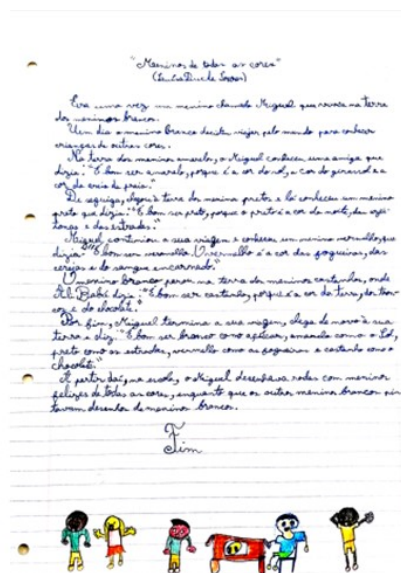 "Meninos de todas as cores"
(Luísa Ducla Soares)
Era uma vez um menino chamado Miguel que morava na terra
dos meninos brancos.
Um dia o menino branco decidiu viajar pelo mundo para conhecer
crianças de outras cores.
Na terra dos meninos amarelos, o Miguel conheceu uma amiga que
dizia: "É bom ser amarelo, porque é a cor do sol, a cor do girassol e a
cor da areia da praia."
De seguida, chegou à terra dos meninos pretos e lá conheceu um menino
preto que dizia: "É bom ser preto, porque o preto é a cor da noite, das azei-
tonas e das estradas."
Miguel continuou a sua viagem e conheceu um menino vermelho, que
dizia: "É bom ser vermelho. O vermelho é a cor das fogueiras, das
cerejas e do sangue encarnado."
O menino branco parou na terra dos meninos castanhos, onde
Ali Babá dizia: "É bom ser castanho, porque é a cor da terra, dos tron-
cos e do chocolate."
Por fim, Miguel termina a sua viagem, chega de novo à sua
terra e diz: "É bom ser branco como açúcar, amarelo como o Sol,
preto como as estradas, vermelho como as fogueiras e castanho como o
chocolate."
A partir daí, na escola, o Miguel desenhava rodas com meninos
felizes de todas as cores, enquanto que os outros meninos brancos pin-
tavam desenhos de meninos brancos.
Fim